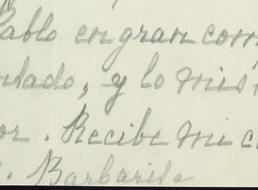 Pablo en gran com
ntado, y lo mis
or. Recibe mi c
. Barbarita